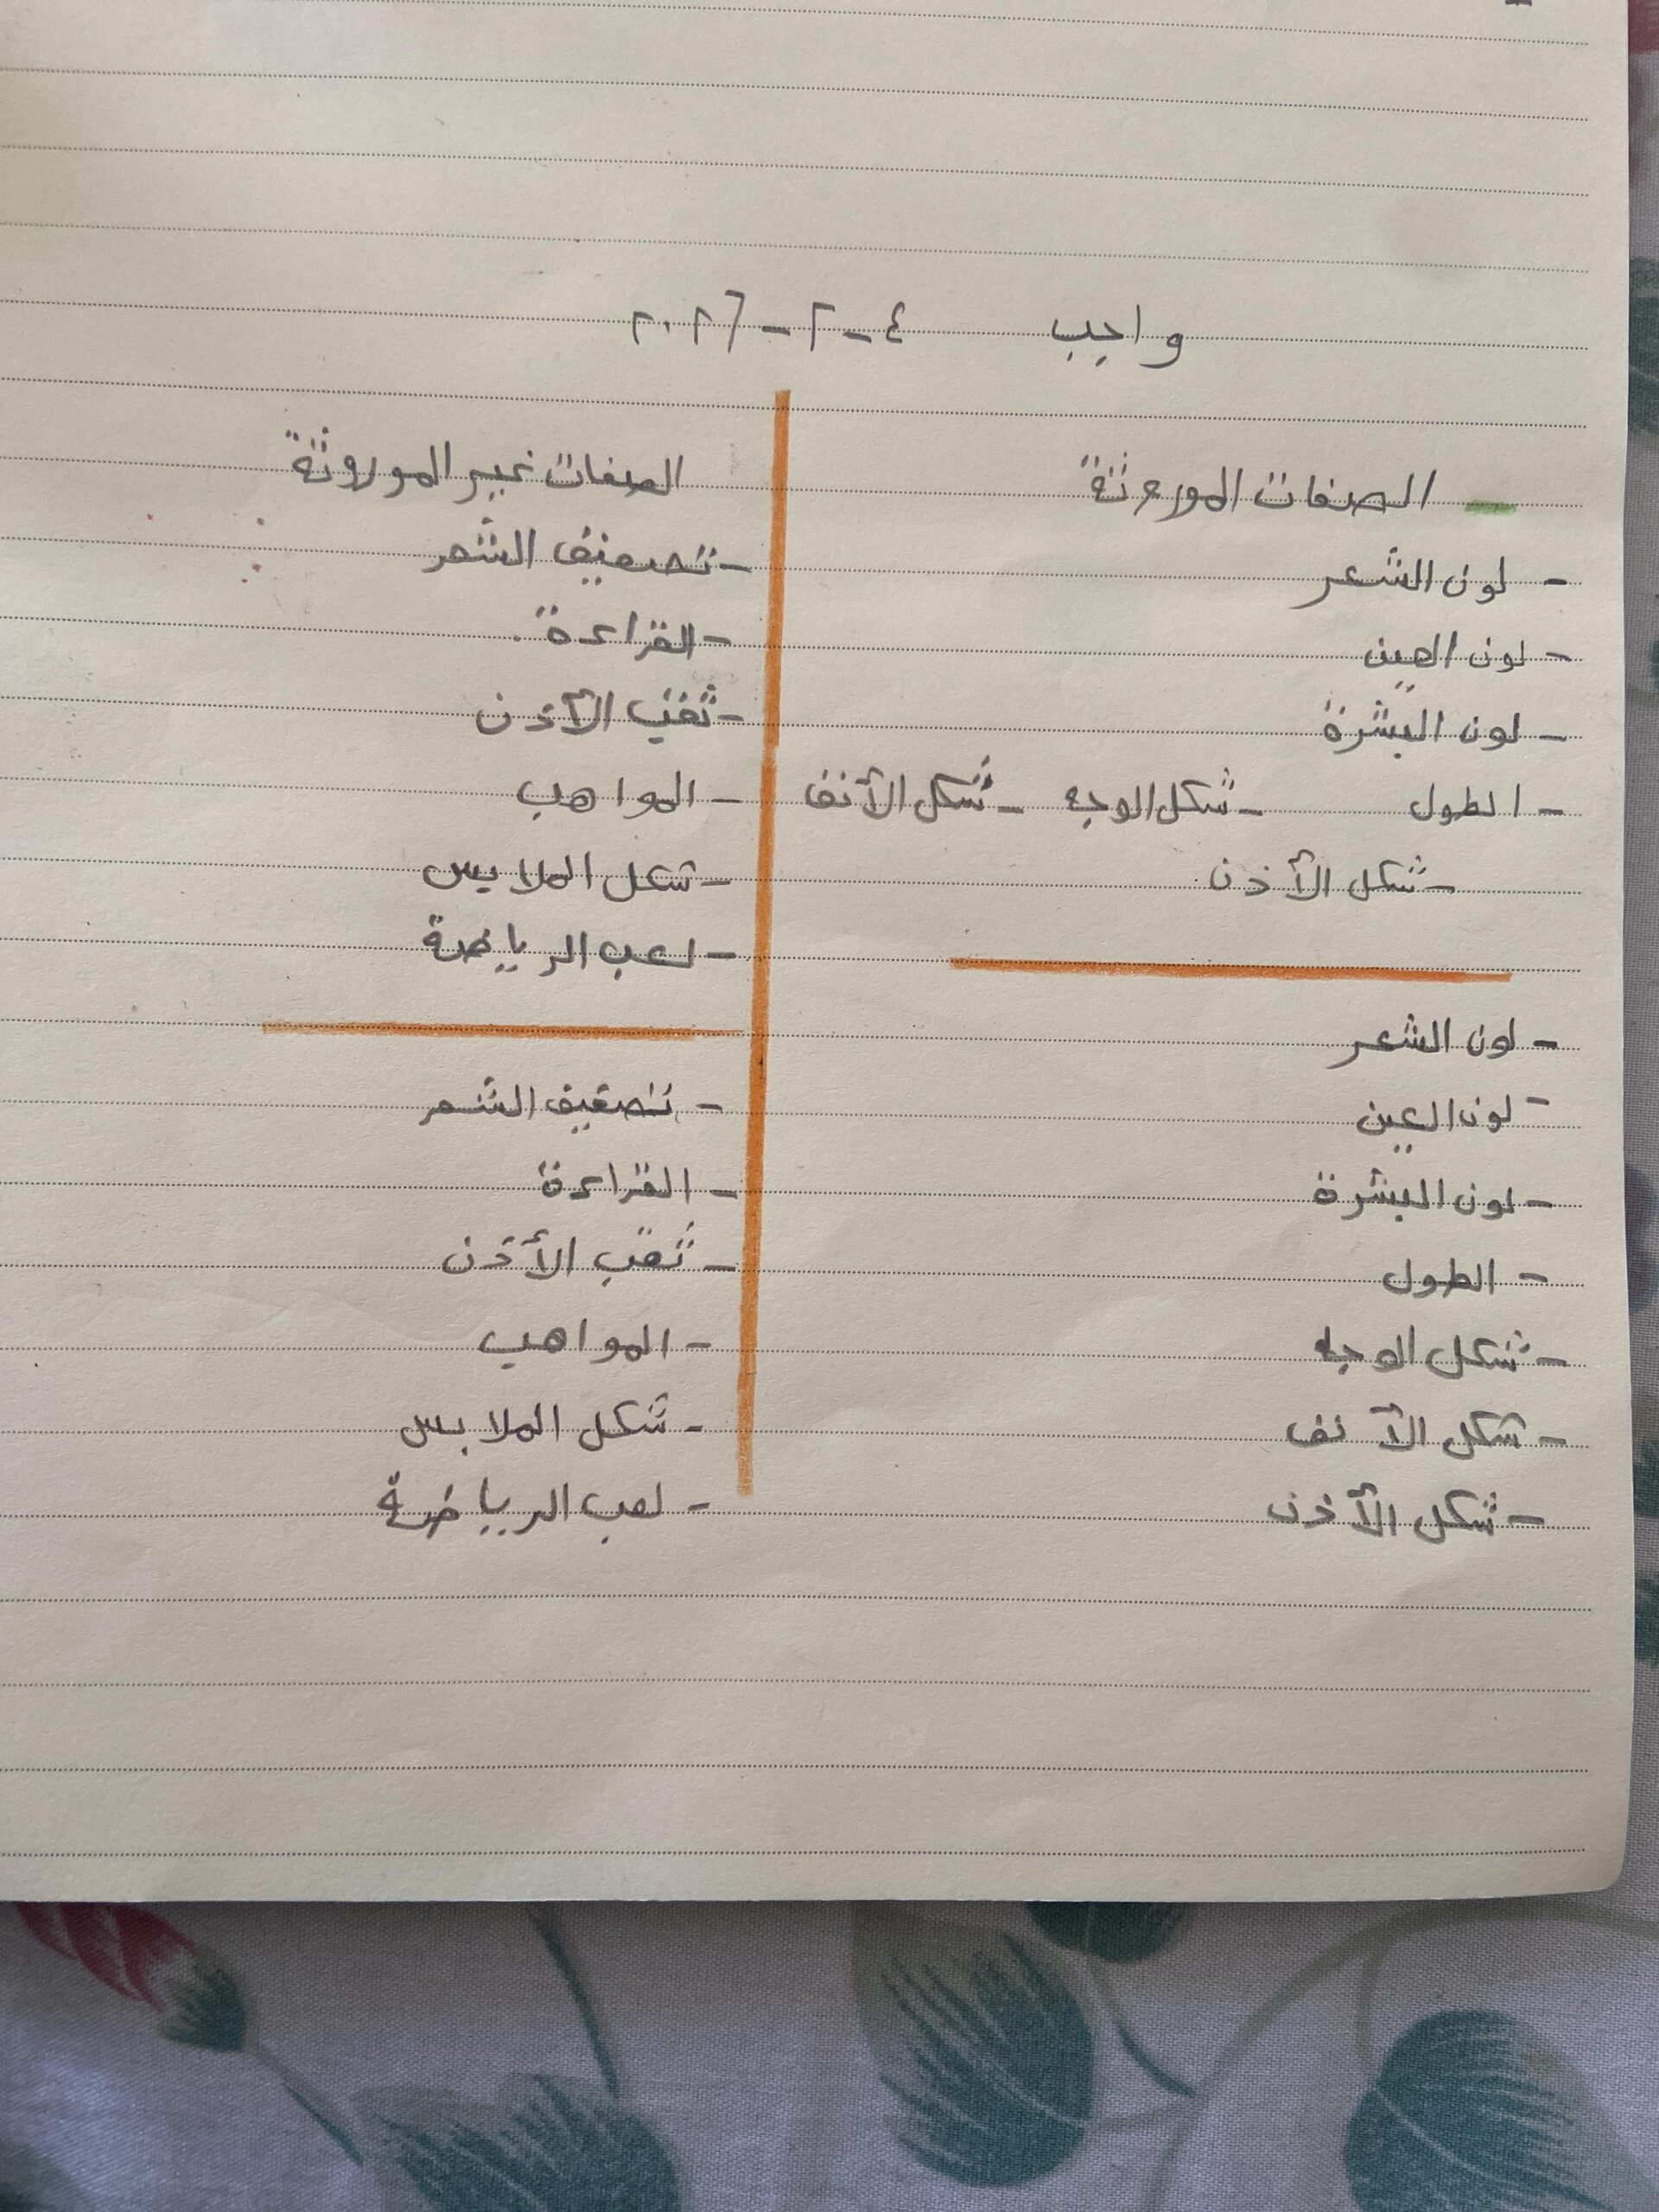 واجب ٤-٢-٢٠٢٦
الصفات الموروثة
- لون الشعر
- لون العين
- لون البشرة
- الطول - شكل الوجه - شكل الآنف
- شكل الآذن
- لون الشعر
- لون العين
- لون البشرة
- الطول
- شكل الوجه
- شكل الآنف
- شكل الآذن
الصفات غير الموروثة
- تصفيف الشعر
- القراءة
- ثقب الآذن
- المواهب
- شكل الملابس
- لعب الرياضة
- تصفيف الشعر
- القراءة
- ثقب الأذن
- المواهب
- شكل الملابس
- لعب الرياضة